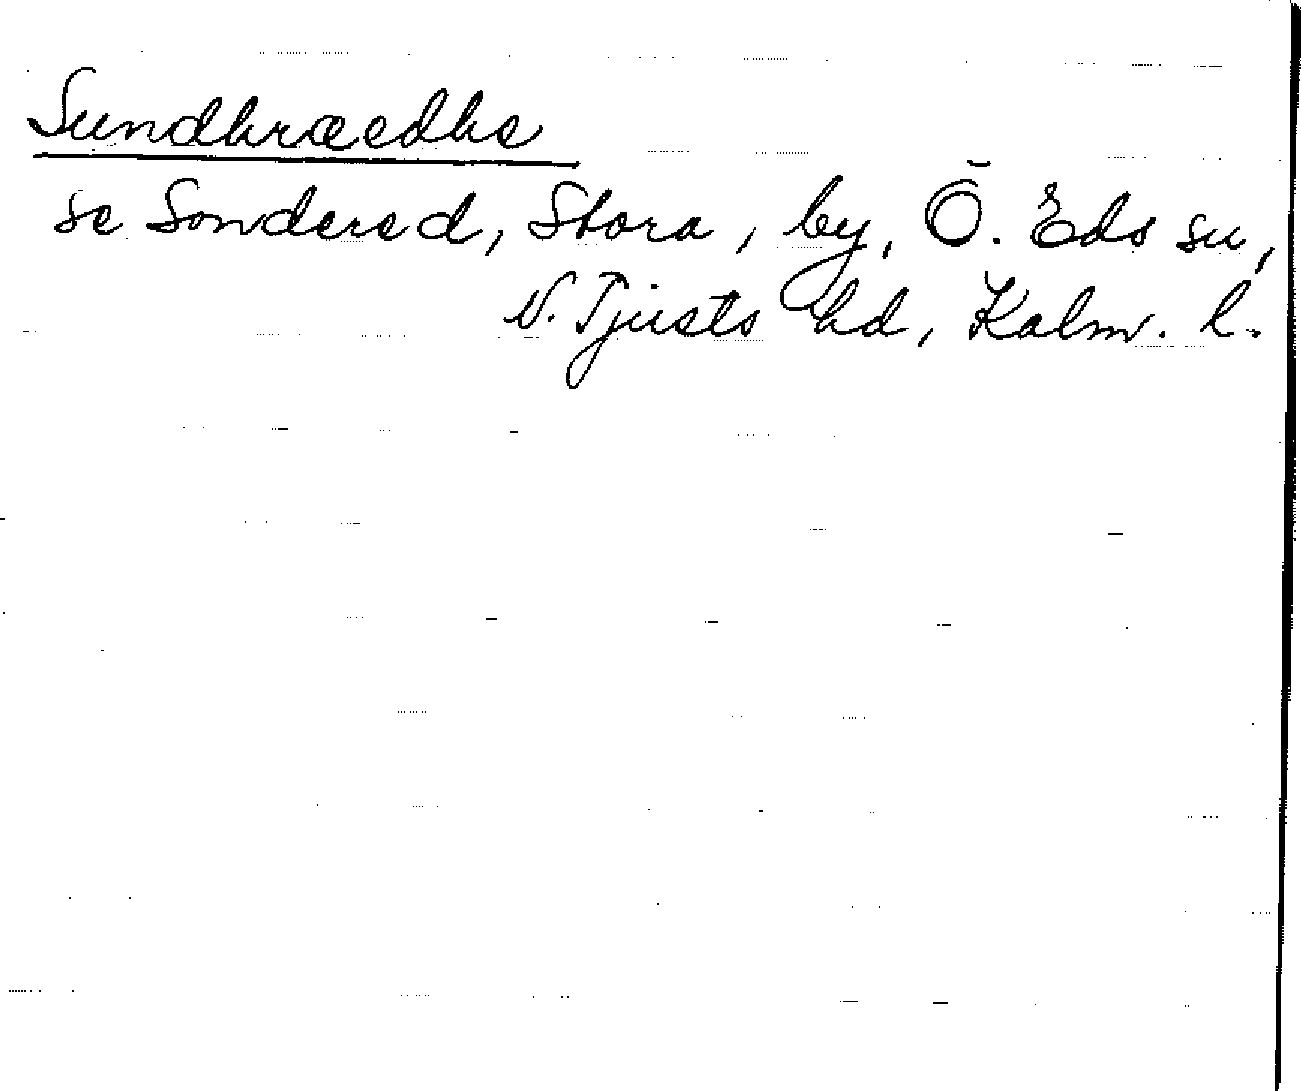 Sundhræedhe
se Sondered, Stora, by, Ö. Eds sn,
N. Tjusts hd, Kalm. l.